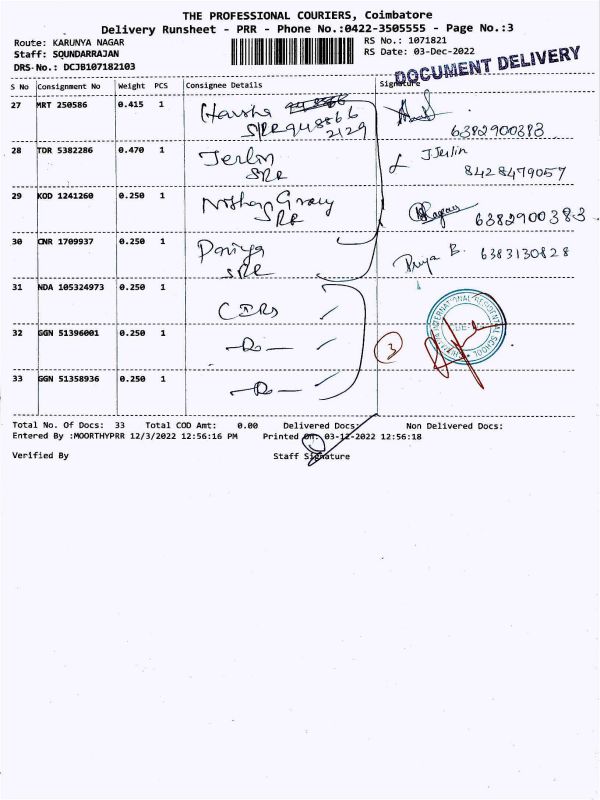 THE PROFESSIONAL COURIERS, Coimbatore
Delivery Runsheet - PRR - Phone No.:0422-3505555 - Page No.:3
Route: KARUNYA NAGAR
Staff: SOUNDARRAJAN
DRS No.: DCJB107182103
RS No.: 1071821
RS Date: 03-Dec-2022
DOCUMENT DELIVERY
S No Consignment No Weight PCS Consignee Details Signature
27 MRT 250586 0.415 1 Harsha
948866
2129
6382900383
28 TDR 5382286 0.470 1 Jerlin J Jerlin
8428479057
29 KOD 1241260 0.250 1 6382900383
30 CNR 1709937 0.250 1 Priya B. 6383130828
31 NDA 105324973 0.250 1
32 GGN 51396001 0.250 1
3
33 GGN 51358936 0.250 1
INTERNATIONAL RESIDENTIAL SCHOOL
Total No. Of Docs: 33 Total COD Amt: 0.00 Delivered Docs: Non Delivered Docs:
Entered By :MOORTHYPRR 12/3/2022 12:56:16 PM Printed On: 03-12-2022 12:56:18
Verified By Staff Signature